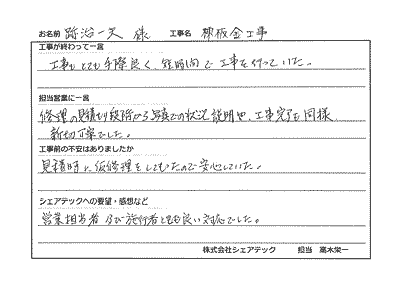 お名前 路治一夫 様 工事名 棟板金工事
工事が終わって一言
工事もとても手際良く、短時間で工事を行っていた。
担当営業に一言
修理の見積り段階から写真での状況説明や、工事完了も同様、
親切丁寧でした。
工事前の不安はありましたか
見積時に仮修理をしてもらったので安心していた。
シェアテックへの要望・感想など
営業担当者及び施行者とても良い対応でした。
株式会社シェアテック 担当 高木栄一